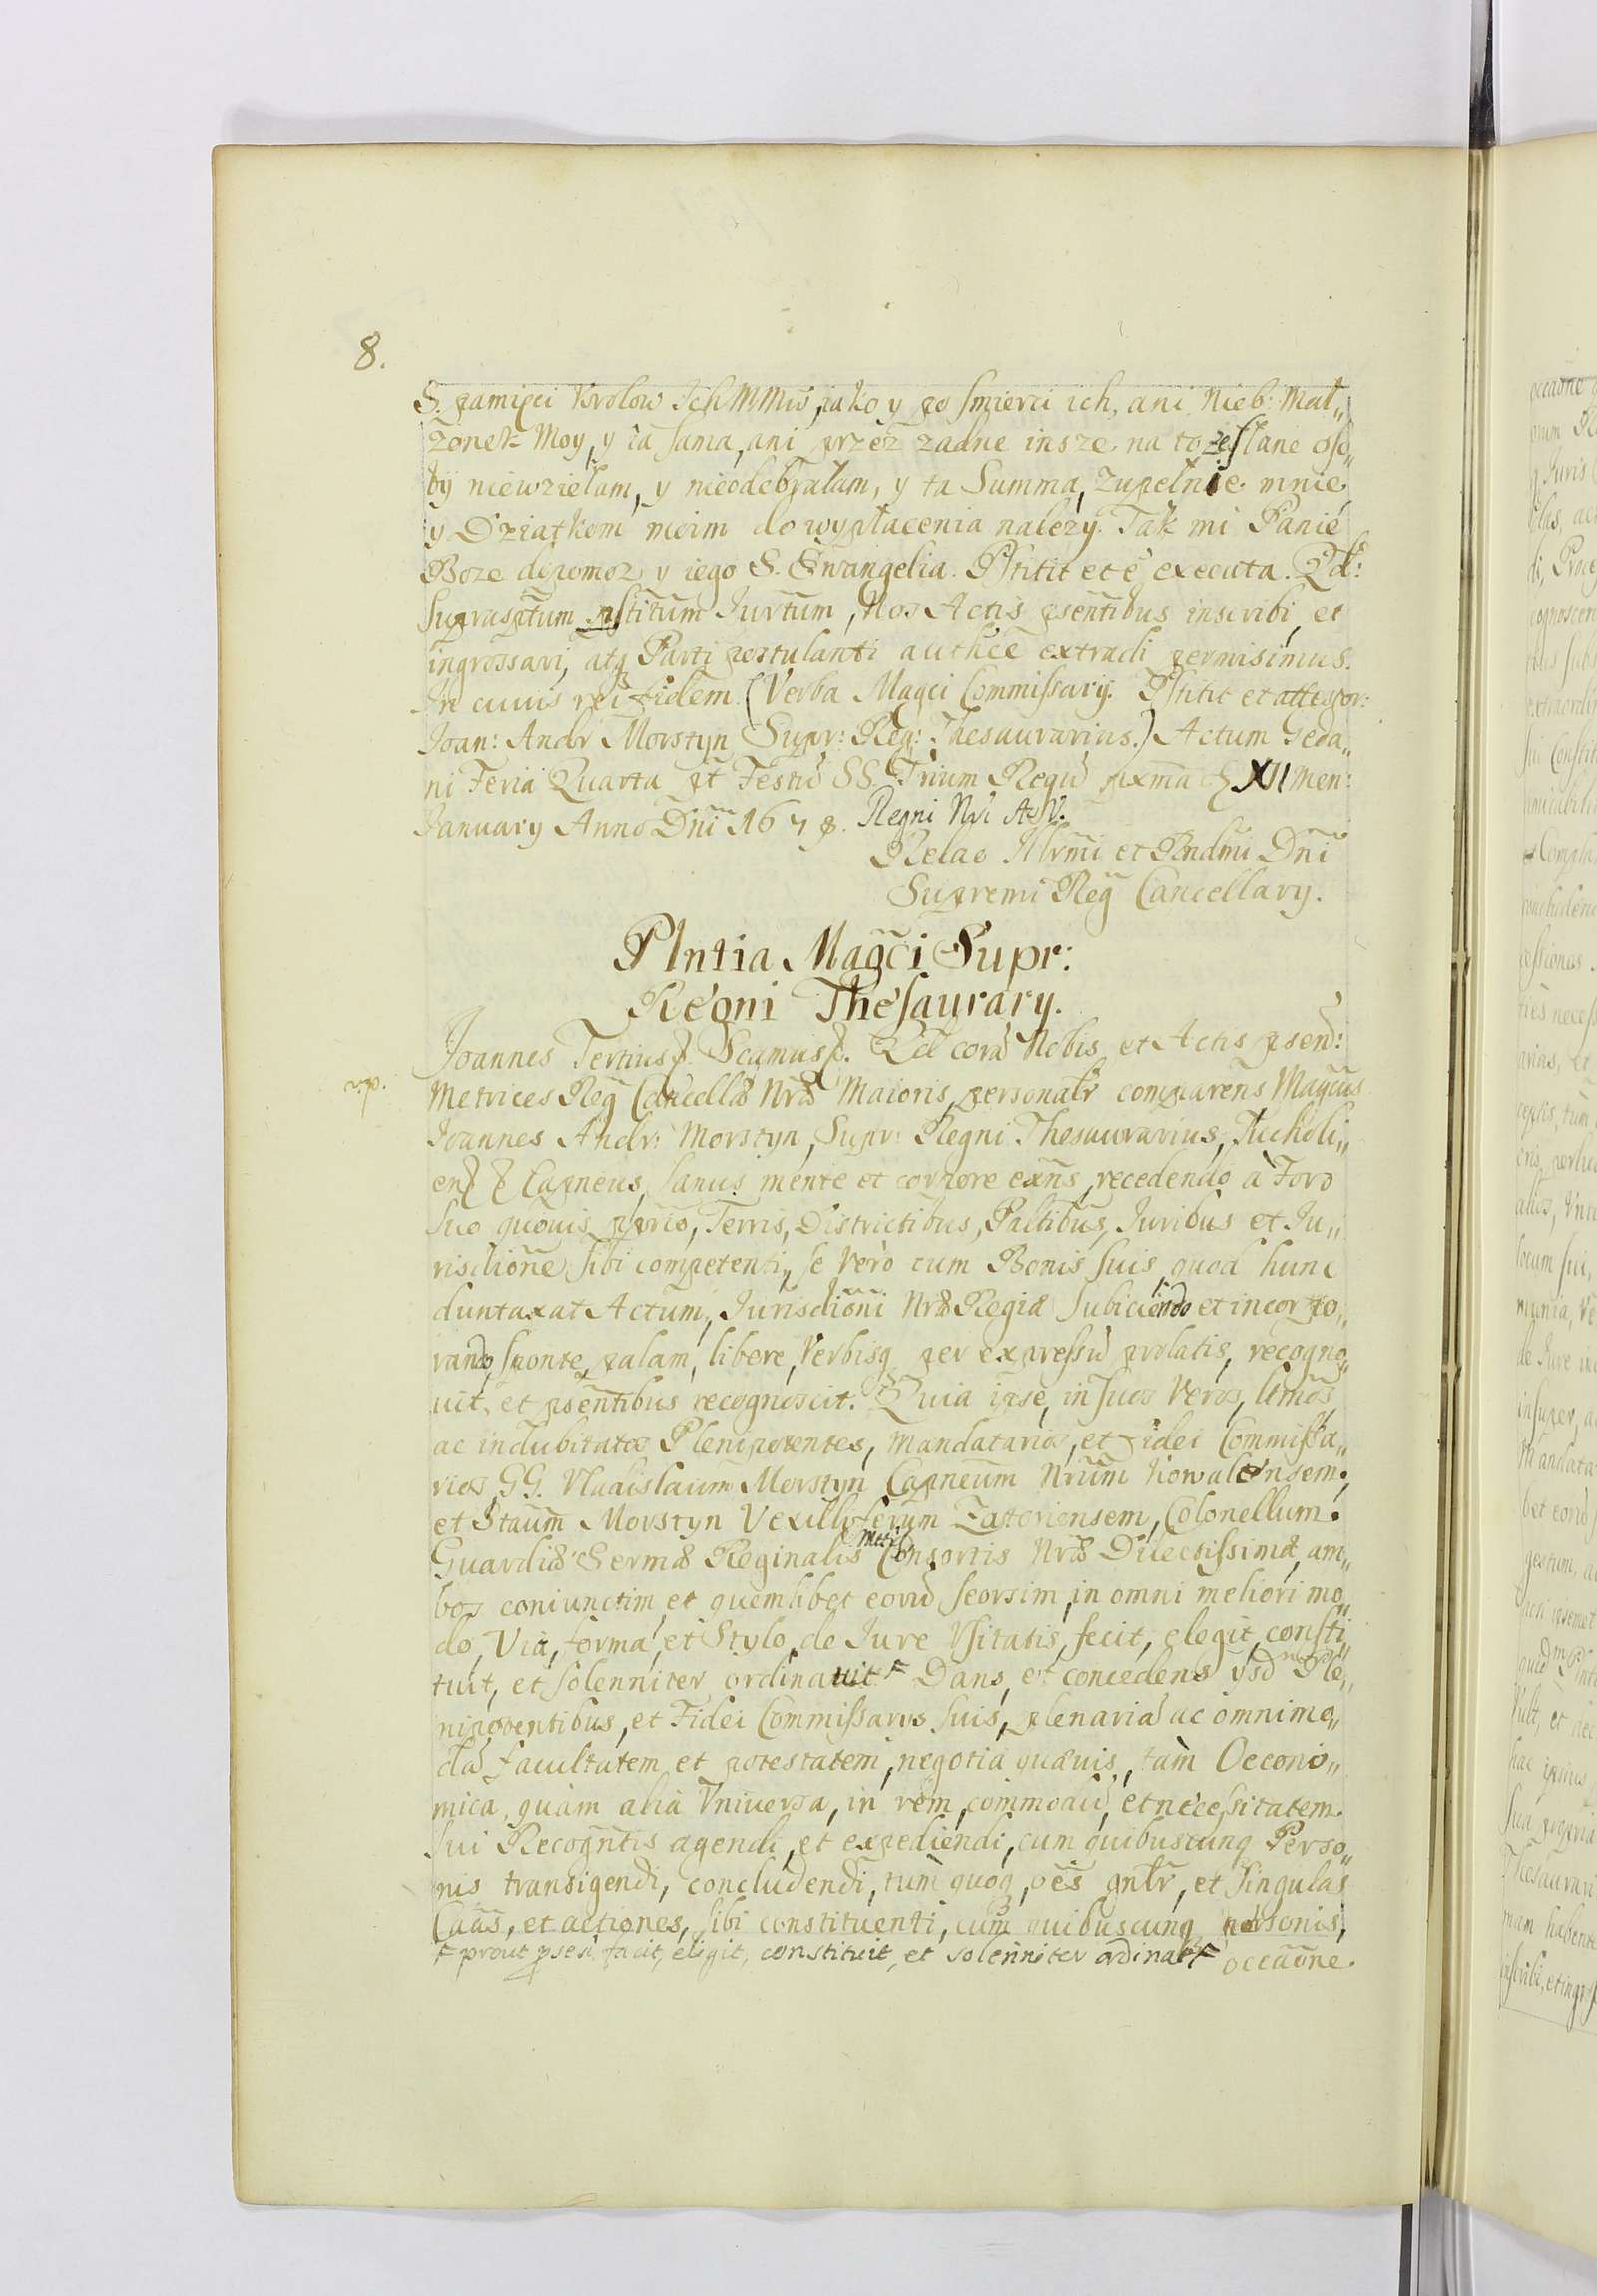 8.
S. pamięci Krolow IchMMiw, iako y po smierci ich, ani Nieb: Mał„
zonek Moy, y ia sama, ani przez zadne insze na to zesłane oso„
by niewziełam, y nieodebrałam, y ta Summa, zupełnie mnie
y Dziatkom moim do wypłacenia nalezy. Tak mi Panie
Boze dopomoz y iego S. Ewangelia. Pstitit et ẽ executa. Qd:
supraspt̃um pstitum Iur̃tum, Nos Actis psentibus inscribi, et
ingrossari, atq Parti postulanti authce extradi permisimus.
In cuius rei fidem. (Verba Magci Commissary. Pstitit et attestor:
Joan: Andr Morstyn Supr: Reg: Thesaurarius.) Actum Geda„
ni Feria Quarta pt Festu SS. Trium Regu pxma XII men:
January Anno Dni 1678. Regni Nri Ao V.
Relao Illrmi et Rndmi Dni
Supremi Reg Cancellary.
Plntia Magci Supr:
Regni Thesaurary.
Joannes Tertius Scamus Qd cora Nobis et Actis psen:
Metrices Reg Cancellæ Nræ Maioris, personalr comparens Magcus
Joannes Andr: Morstyn, Supr: Regni Thesaurarius, Tucholi„
en Capneus, sanus mente et corpore exns, recedendo à Foro
suo quouis pprio, Terris, Districtibus, Paltibus, Iuribus et Iu„
risdione sibi competenti, se Vero cum Bonis suis quoad hunc
duntaxat Actum, Iurisdioni Nræ Regiæ subiciendo et incorpo„
rando, sponte, palam, libere, Verbisq per expressu prolatis, recogno„
uit, et psentibus recognoscit. Quia ipse, in suos Veros, ltmos,
ac indubitatos Plenipotentes, Mandatarios, et Fidei Commissa„
rios, GG. Vladislaum Morstyn Capneum Nrum Kowalensem,
et Staum Morstyn Vexilliferum Zatoriensem, Colonellum
Guardiæ Sermæ Reginalis Mttis Consortis Nræ Dilectissimæ, am„
bos coniunctim, et quemlibet eoru seorsim, in omni meliori mo„
do, Via, forma, et Stylo, de Iure Vsitatis, fecit, elegit, consti„
tuit, et solenniter ordinauit Dans, et concedens ysd Ple„
nipotentibus, et Fidei Commissarys suis, plenaria ac omnimo„
da facultatem et potestatem, negotia quæuis, tàm Oecono„
mica, quàm alia Vniuersa, in rem, commodu, et necessitatem
sui Recogntis agendi, et expediendi, cum quibuscunq Perso„
nis transigendi, concludendi, tum quoq, oes gnlr, et singulas
Caas, et actiones, sibi constituenti, cum quibuscunq personis,
prout psesi facit, eligit, constituit, et solenniter ordinat
occaone